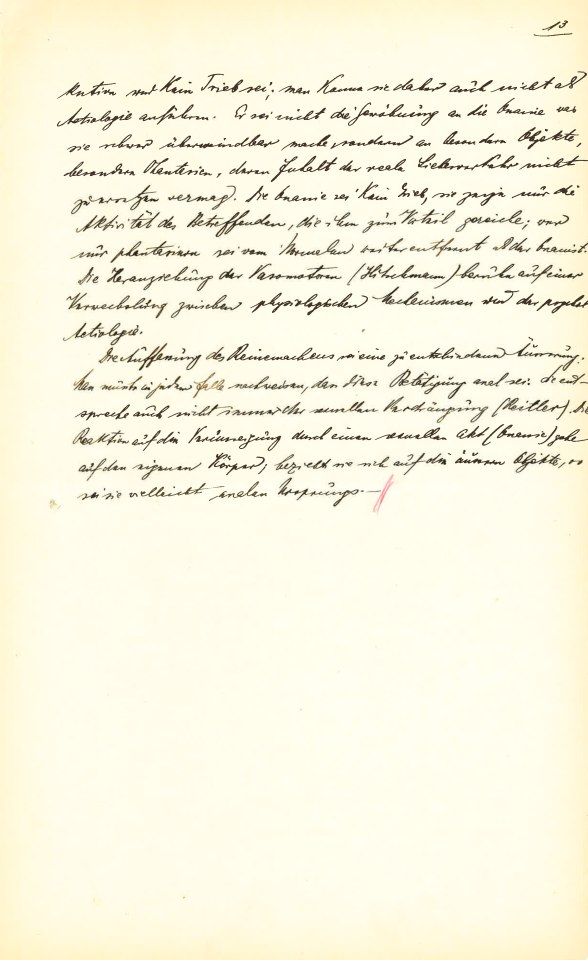 13
kutiv und kein Trieb sei; man kann sie daher auch nicht als
Aetiologie anführen. Es sei nicht die Gewöhnung an die Onanie was
sie schwer überwindbar mache, sondern an besondern Objekte,
besondern Phantasien, deren Inhalt der reale Liebesverkehr nicht
zu ersetzen vermag. Die Onanie sei kein Trieb, sie zeige nur die
Aktivität des Betreffenden, die ihm zum Vorteil gereiche; wer
nur phantasiere sei vom Normalen weiter entfernt als der Onanist.
Die Heranziehung der Vasomotoren (Hitschmann) beruhe auf einer
Verwechslung zwischen physiologischen Mechanismen und der psychol
Aetiologie.
Die Auffassung des Reinemachens sei eine zu entschiedene Äusserung.
Man müsste in jedem falle nachweisen, dass diese Betätigung anal sei. Sie ent-
spreche auch nicht immer der sexuellen Verdrängung (Reitler). Die
Reaktion auf die Verunreinigung durch einen sexuellen Akt (Onanie) gehe
auf den eigenen Körper; bezieht sie sich auf die äussern Objekte, so
sei sie vielleicht analen Ursprungs. —